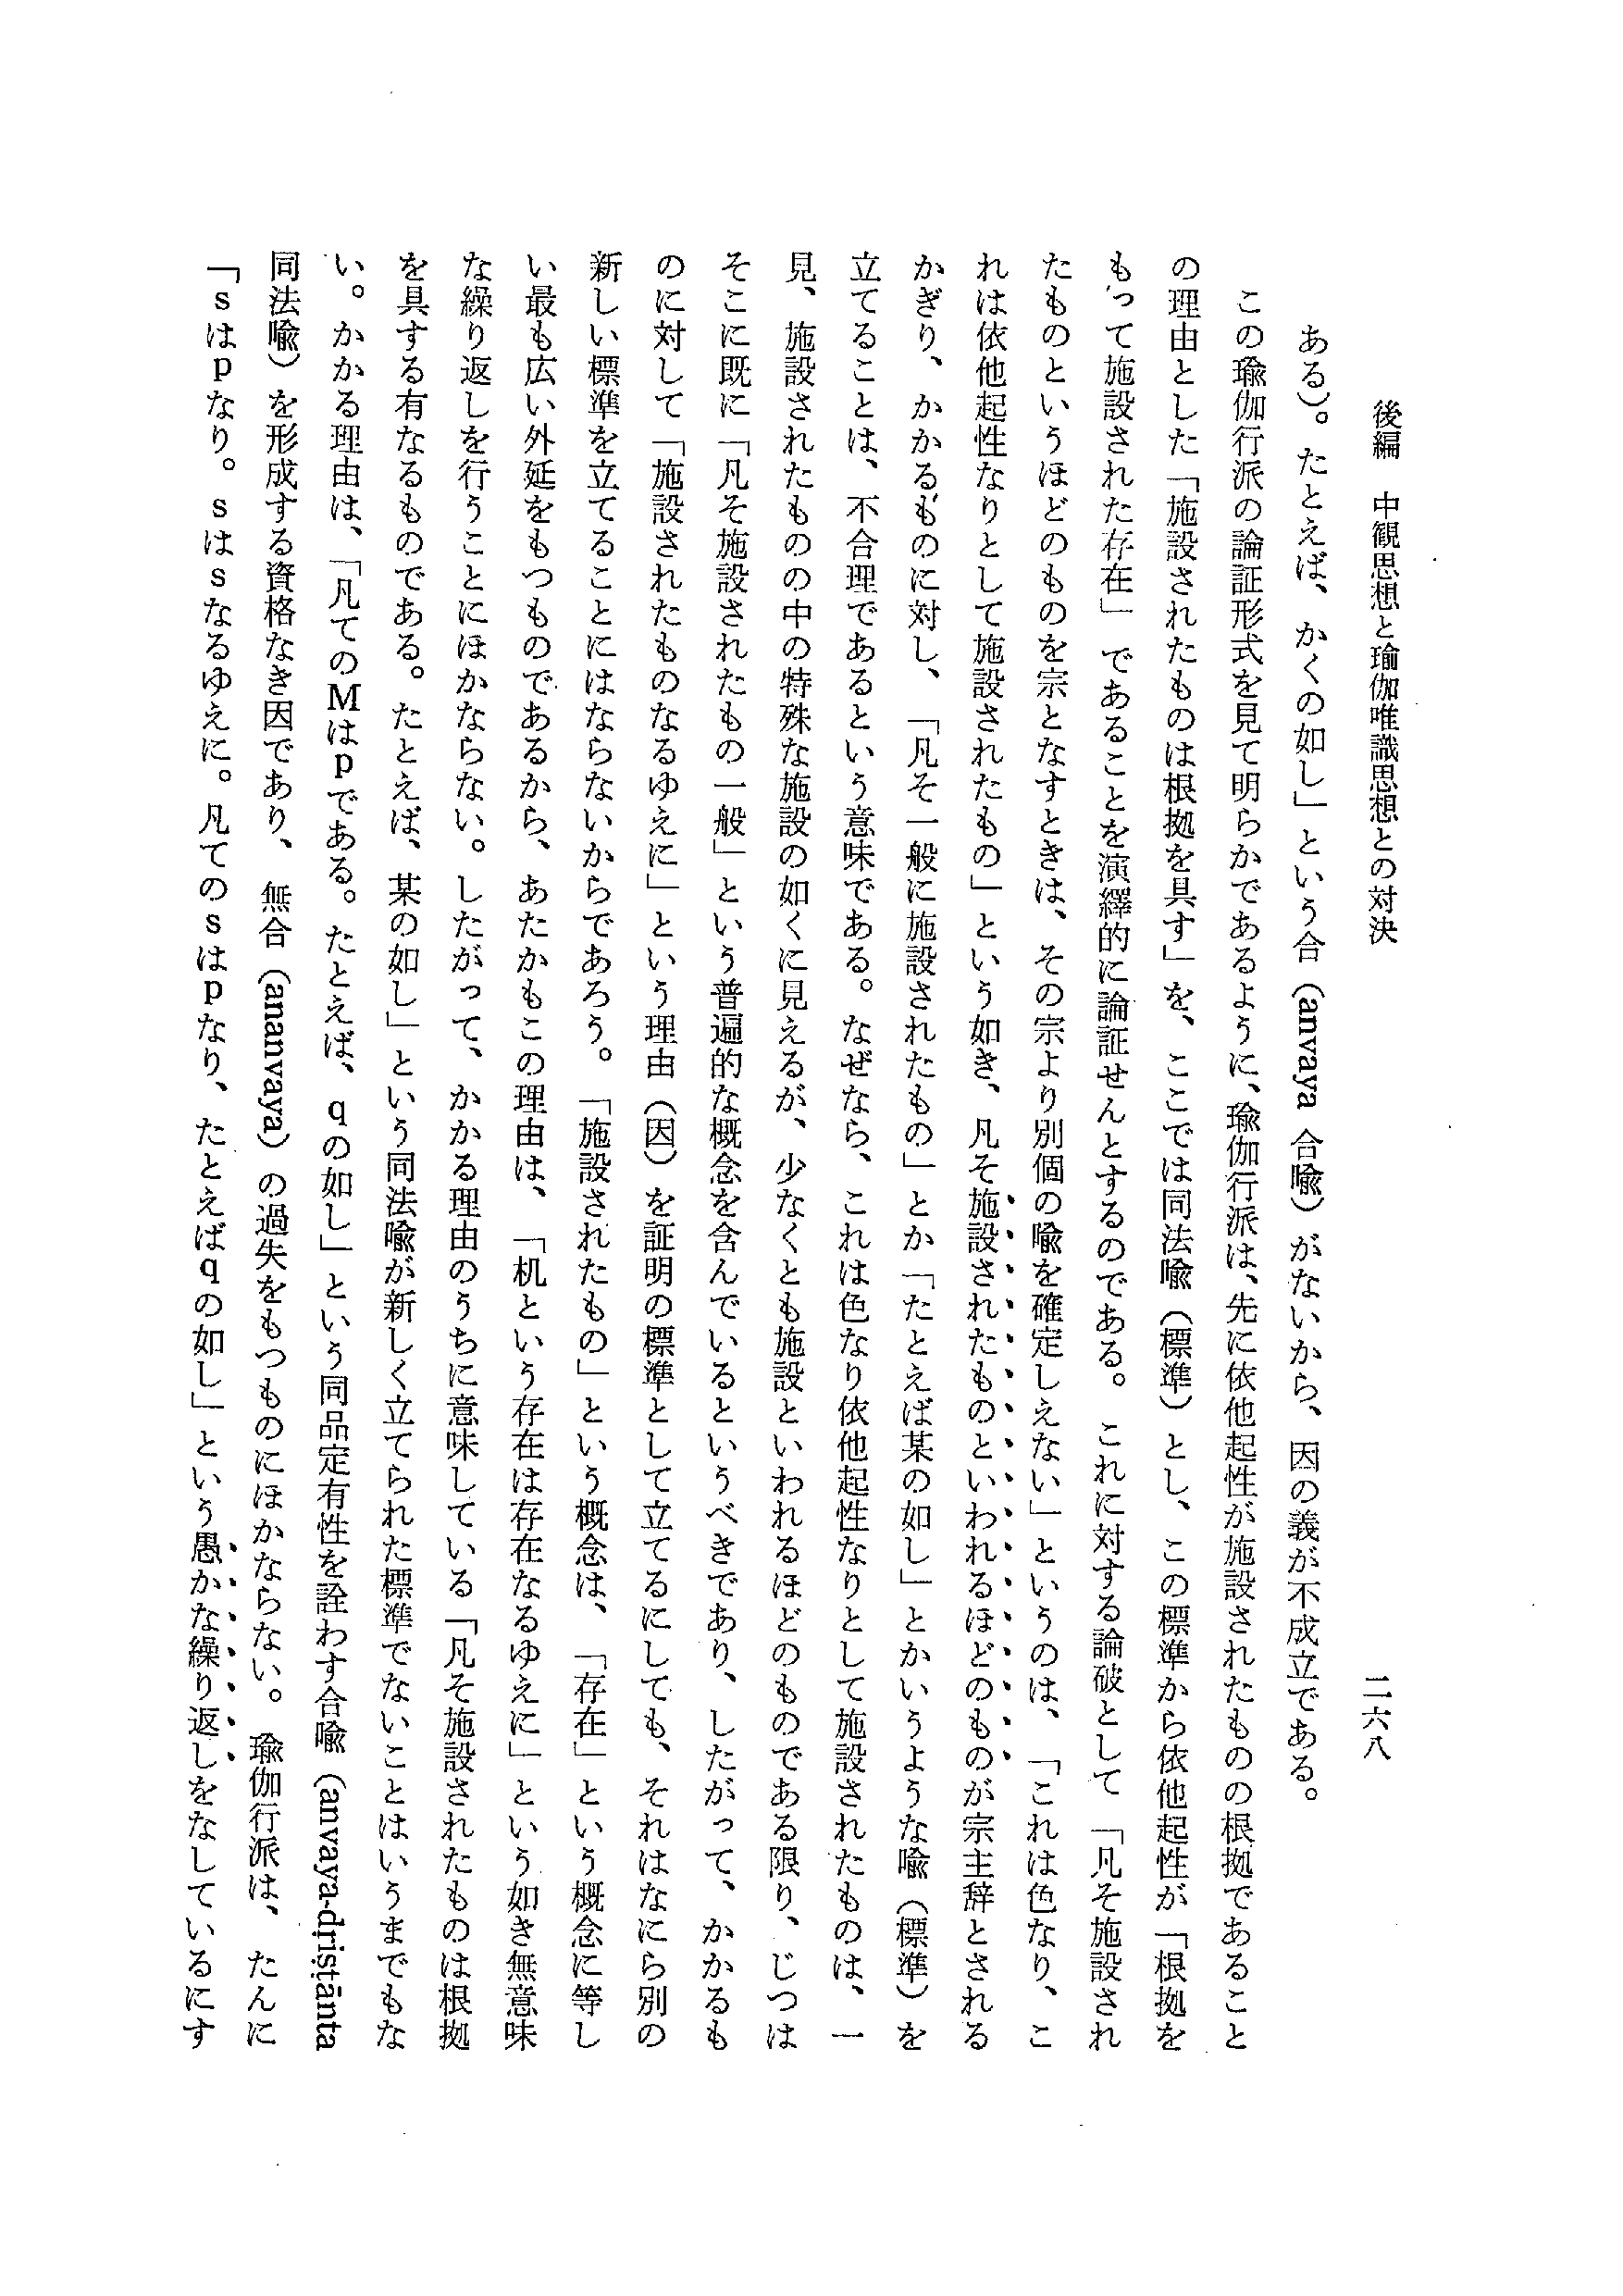 後編　中観思想と瑜伽唯識思想との対決
二六八
ある)。たとえば、かくの如し」という合(anvaya 合喩)がないから、因の義が不成立である。
この瑜伽行派の論証形式を見て明らかであるように、瑜伽行派は、先に依他起性が施設されたものの根拠であること
の理由とした「施設されたものは根拠を具す」を、ここでは同法喩(標準)とし、この標準から依他起性が「根拠を
もって施設された存在」であることを演繹的に論証せんとするのである。これに対する論破として「凡そ施設され
たものというほどのものを宗となすときは、その宗より別個の喩を確定しえない」というのは、「これは色なり、こ
れは依他起性なりとして施設されたもの」という如き、凡そ施設されたものといわれるほどのものが宗主辞とされる
かぎり、かかるものに対し、「凡そ一般に施設されたもの」とか「たとえば某の如し」とかいうような喩(標準)を
立てることは、不合理であるという意味である。なぜなら、これは色なり依他起性なりとして施設されたものは、一
見、施設されたものの中の特殊な施設の如くに見えるが、少なくとも施設といわれるほどのものである限り、じつは
そこに既に「凡そ施設されたもの一般」という普遍的な概念を含んでいるというべきであり、したがって、かかるも
のに対して「施設されたものなるゆえに」という理由(因)を証明の標準として立てるにしても、それはなにら別の
新しい標準を立てることにはならないからであろう。「施設されたもの」という概念は、「存在」という概念に等し
い最も広い外延をもつものであるから、あたかもこの理由は、「机という存在は存在なるゆえに」という如き無意味
な繰り返しを行うことにほかならない。したがって、かかる理由のうちに意味している「凡そ施設されたものは根拠
を具する有なるものである。たとえば、某の如し」という同法喩が新しく立てられた標準でないことはいうまでもな
い。かかる理由は、「凡てのMはpである。たとえば、qの如し」という同品定有性を詮わす合喩(anvaya-dṛiṣṭānta
同法喩)を形成する資格なき因であり、無合(ananvaya)の過失をもつものにほかならない。瑜伽行派は、たんに
「sはpなり。sはsなるゆえに。凡てのsはpなり、たとえばqの如し」という愚かな繰り返しをなしているにす